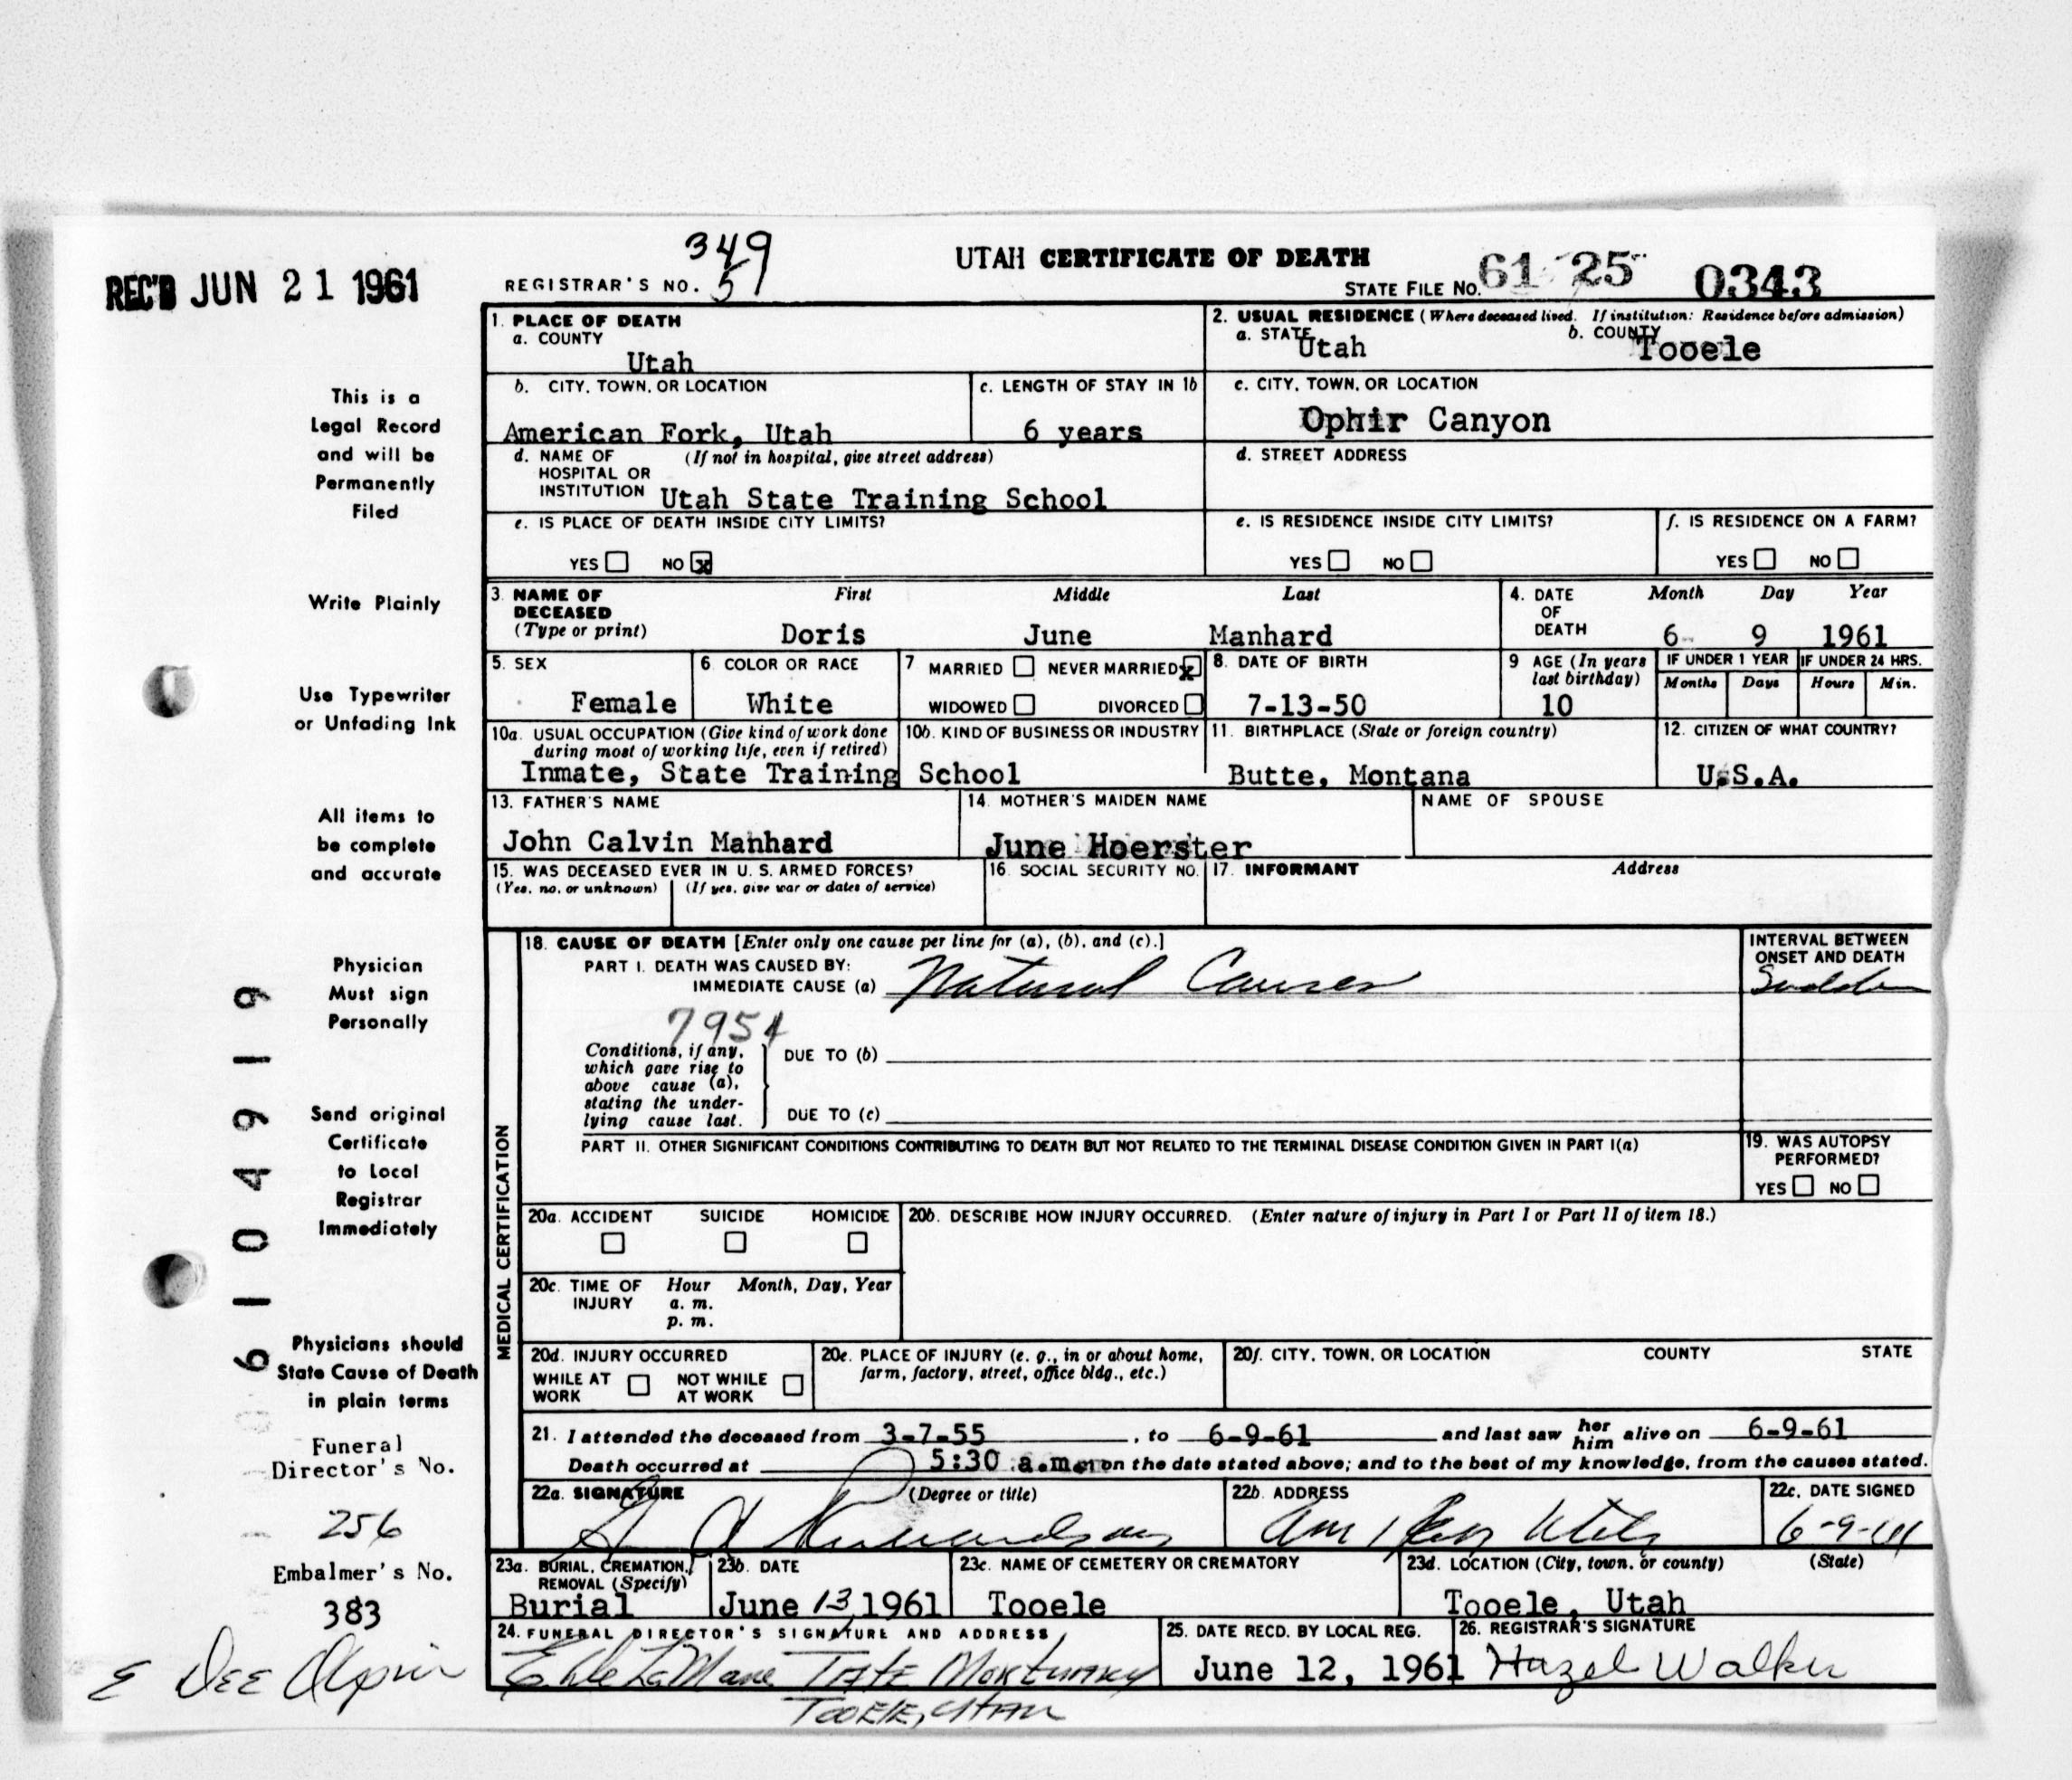 REC'D JUN 21 1961
349
REGISTRAR'S NO. 57
UTAH CERTIFICATE OF DEATH
STATE FILE NO. 61 25 0343
1. PLACE OF DEATH
a. COUNTY
Utah
2. USUAL RESIDENCE (Where deceased lived. If institution: Residence before admission)
a. STATE Utah b. COUNTY Tooele
b. CITY, TOWN, OR LOCATION
American Fork, Utah
c. LENGTH OF STAY IN 1b
6 years
c. CITY, TOWN, OR LOCATION
Ophir Canyon
d. NAME OF HOSPITAL OR INSTITUTION (If not in hospital, give street address)
Utah State Training School
d. STREET ADDRESS
e. IS PLACE OF DEATH INSIDE CITY LIMITS?
YES NO x
e. IS RESIDENCE INSIDE CITY LIMITS?
YES NO
f. IS RESIDENCE ON A FARM?
YES NO
3. NAME OF DECEASED (Type or print) First Middle Last
Doris June Manhard
4. DATE OF DEATH Month Day Year
6- 9 1961
5. SEX
Female
6. COLOR OR RACE
White
7. MARRIED NEVER MARRIED x
WIDOWED DIVORCED
8. DATE OF BIRTH
7-13-50
9 AGE (In years last birthday)
10
IF UNDER 1 YEAR IF UNDER 24 HRS.
Months Days Hours Min.
10a. USUAL OCCUPATION (Give kind of work done during most of working life, even if retired)
10b. KIND OF BUSINESS OR INDUSTRY
Inmate, State Training School
11. BIRTHPLACE (State or foreign country)
Butte, Montana
12. CITIZEN OF WHAT COUNTRY?
U.S.A.
13. FATHER'S NAME
John Calvin Manhard
14. MOTHER'S MAIDEN NAME
June Hoerster
NAME OF SPOUSE
15. WAS DECEASED EVER IN U. S. ARMED FORCES?
(Yes, no, or unknown) (If yes, give war or dates of service)
16. SOCIAL SECURITY NO.
17. INFORMANT Address
MEDICAL CERTIFICATION
18. CAUSE OF DEATH [Enter only one cause per line for (a), (b), and (c).]
PART I. DEATH WAS CAUSED BY:
IMMEDIATE CAUSE (a) Natural Causes
INTERVAL BETWEEN ONSET AND DEATH
Sudden
7954
Conditions, if any, which gave rise to above cause (a), stating the underlying cause last.
DUE TO (b)
DUE TO (c)
PART II. OTHER SIGNIFICANT CONDITIONS CONTRIBUTING TO DEATH BUT NOT RELATED TO THE TERMINAL DISEASE CONDITION GIVEN IN PART I(a)
19. WAS AUTOPSY PERFORMED?
YES NO
20a. ACCIDENT SUICIDE HOMICIDE
20b. DESCRIBE HOW INJURY OCCURRED. (Enter nature of injury in Part I or Part II of item 18.)
20c. TIME OF INJURY Hour Month, Day, Year
a. m.
p. m.
20d. INJURY OCCURRED
WHILE AT WORK NOT WHILE AT WORK
20e. PLACE OF INJURY (e. g., in or about home, farm, factory, street, office bldg., etc.)
20f. CITY, TOWN, OR LOCATION COUNTY STATE
21. I attended the deceased from 3-7-55, to 6-9-61 and last saw her him alive on 6-9-61
Death occurred at 5:30 a.m. on the date stated above; and to the best of my knowledge, from the causes stated.
22a. SIGNATURE (Degree or title)
22b. ADDRESS
22c. DATE SIGNED
6-9-61
23a. BURIAL, CREMATION, REMOVAL (Specify)
Burial
23b. DATE
June 13, 1961
23c. NAME OF CEMETERY OR CREMATORY
Tooele
23d. LOCATION (City, town, or county) (State)
Tooele, Utah
24. FUNERAL DIRECTOR'S SIGNATURE AND ADDRESS
Tate Mortuary
Tooele, Utah
25. DATE RECD. BY LOCAL REG.
June 12, 1961
26. REGISTRAR'S SIGNATURE
Hazel Walker
This is a
Legal Record
and will be
Permanently
Filed
Write Plainly
Use Typewriter
or Unfading Ink
All items to
be complete
and accurate
Physician
Must sign
Personally
Send original
Certificate
to Local
Registrar
Immediately
Physicians should
State Cause of Death
in plain terms
Funeral
Director's No.
256
Embalmer's No.
383
E Dee
6104919